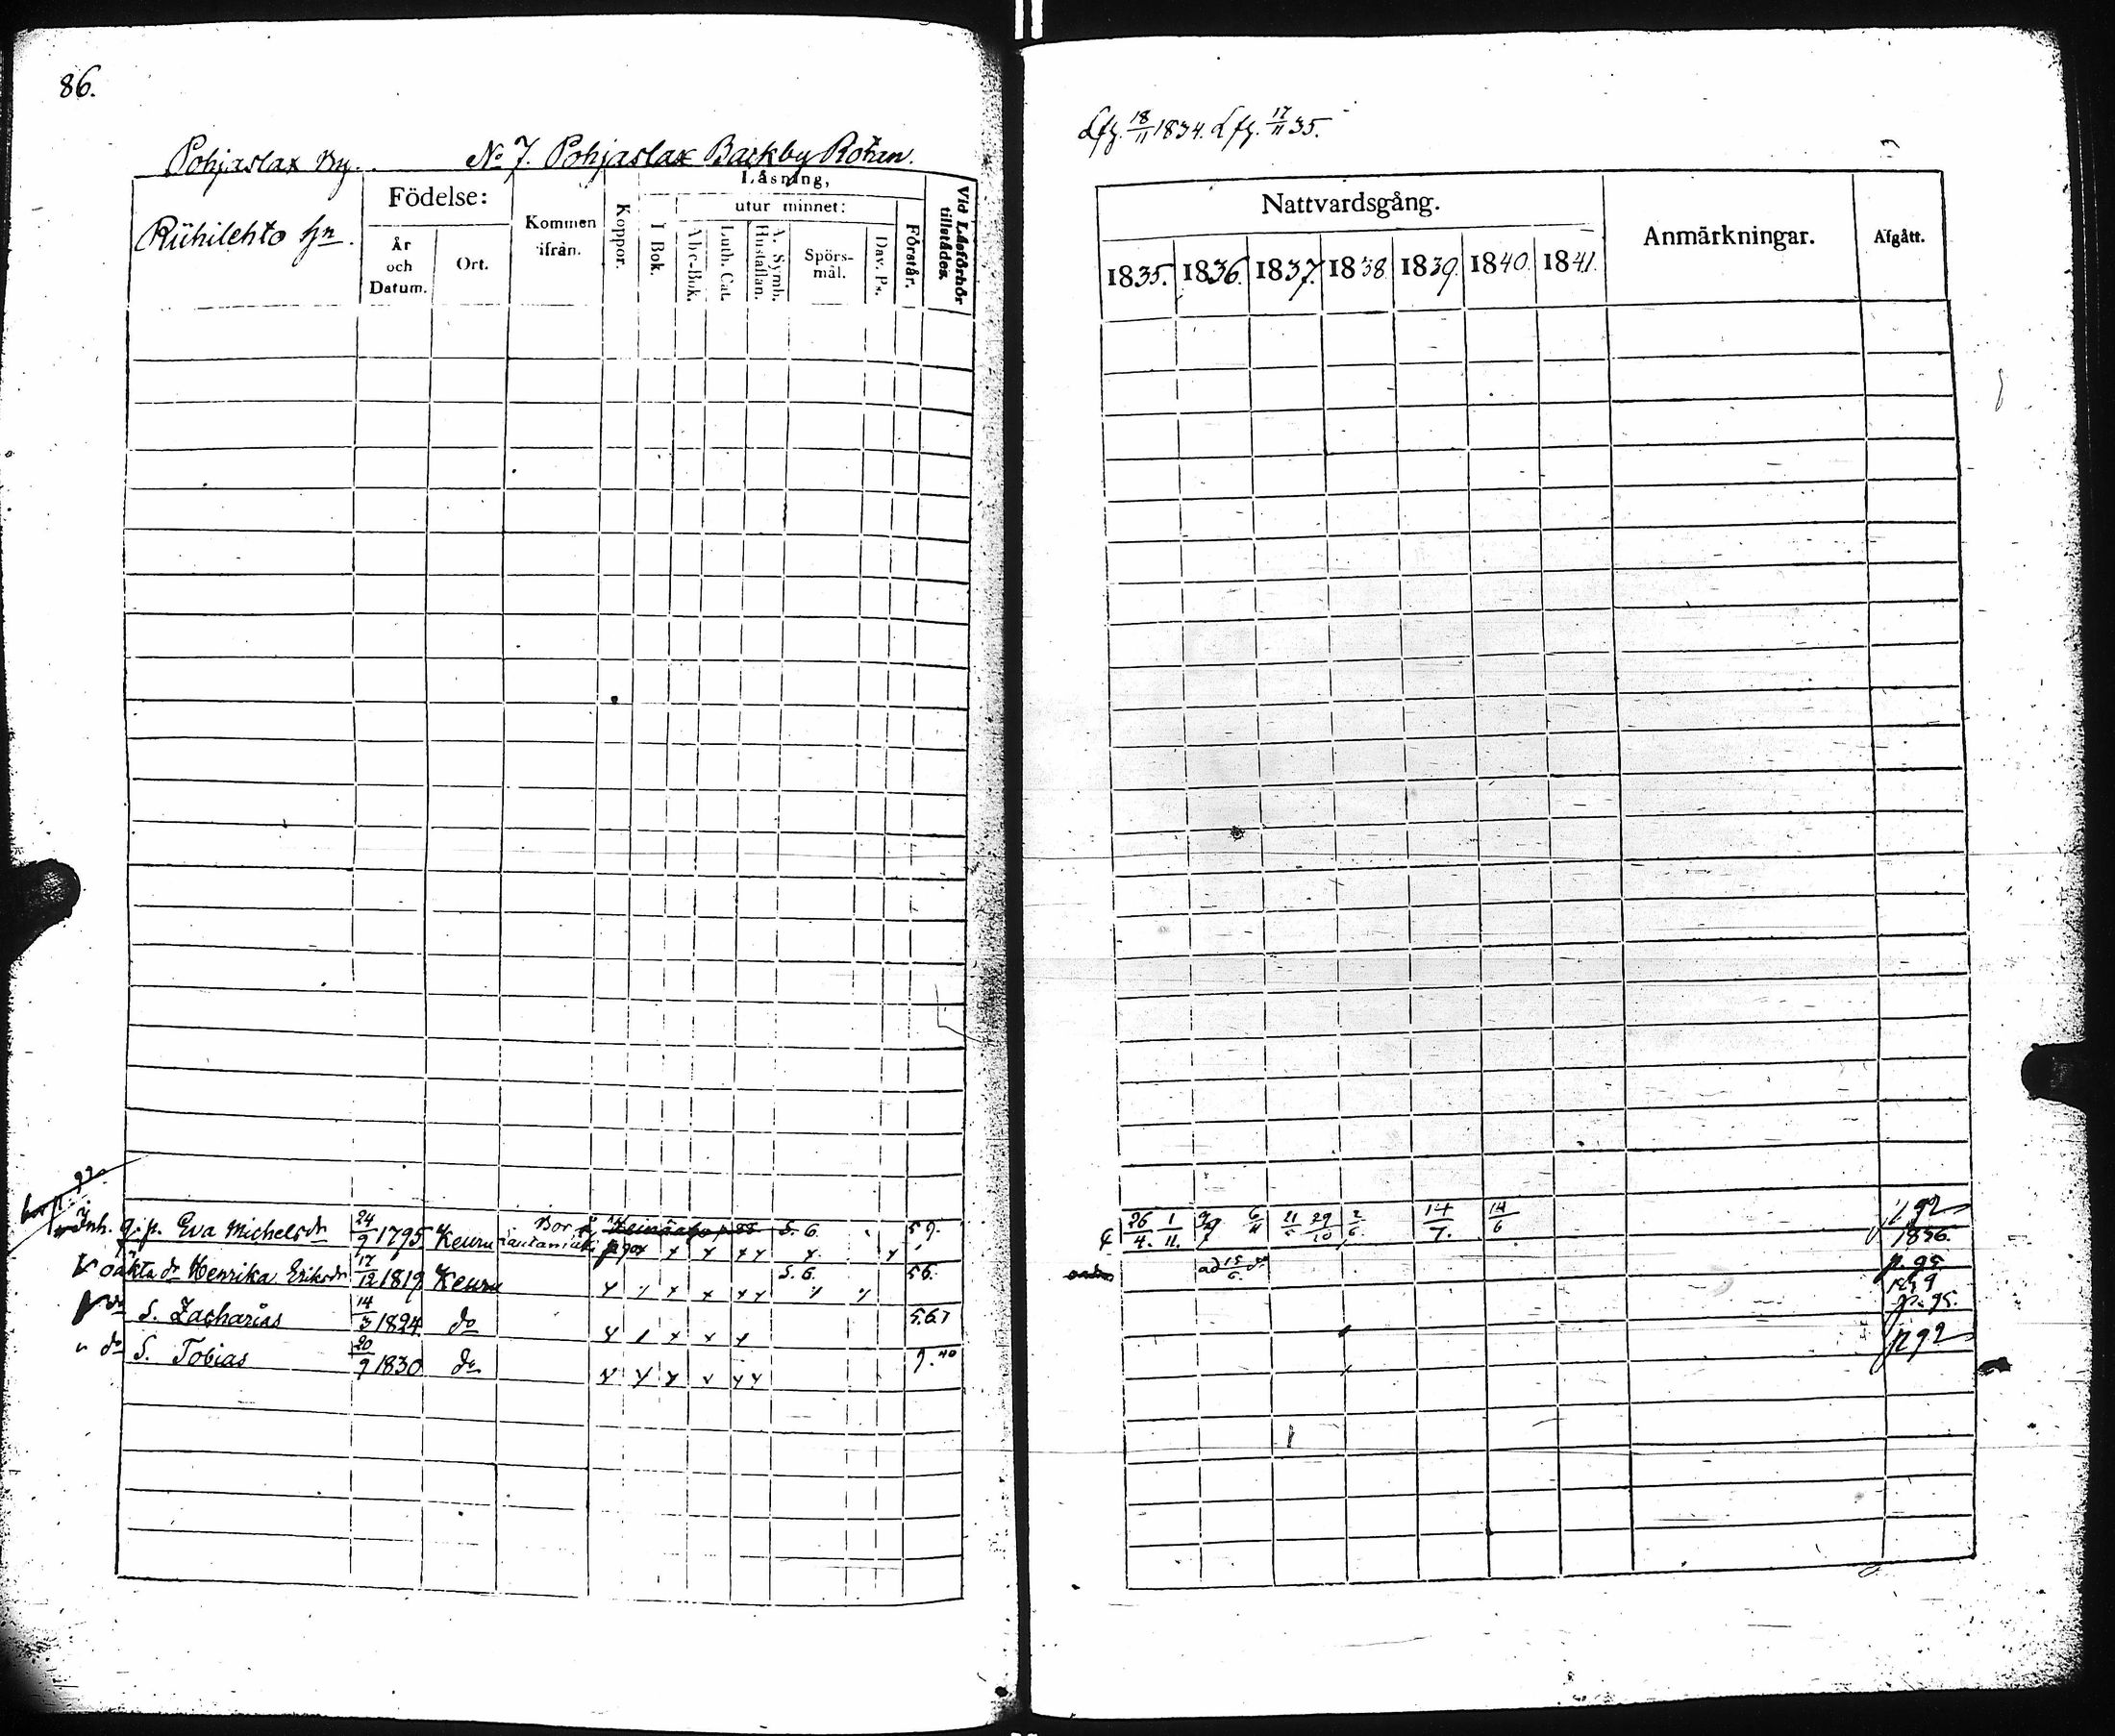 86.
Pohjaslax By. No 7. Pohjaslax Backby Rotan.
Riihilehto hn.
Födelse:
År och Datum.
Ort.
Kommen ifrån.
Koppor.
Läsning,
I Bok.
utur minnet:
Abc-Bok.
Luth. Cat.
A. Symb. Hustaflan.
Spörs-mål.
Dav. Ps.
Förstår.
Vid Läsförhör tillstådes.
Inh. q.p. Eva Michelsdr 24/9 1795 Keuru Bor å Heinäaho p 88 S. 6. 59.
p 90
oäkta dr Henrika Eriksdr 17/12 1819 Keuru S. 6. 56.
do S. Zacharias 14/3 1824 do 567
do S. Tobias 20/9 1830 do 9.40
Lfg. 18/11 1834. Lfg. 17/11 35.
Nattvardsgång.
Anmärkningar.
Afgått.
1835. 1836. 1837. 1838 1839. 1840. 1841.
26/4. 1/11. 6/11 21/5 29/10 2/6. 14/7. 14/6 p 92
1836.
ad 15/6 p. 95
p. 95.
p 92